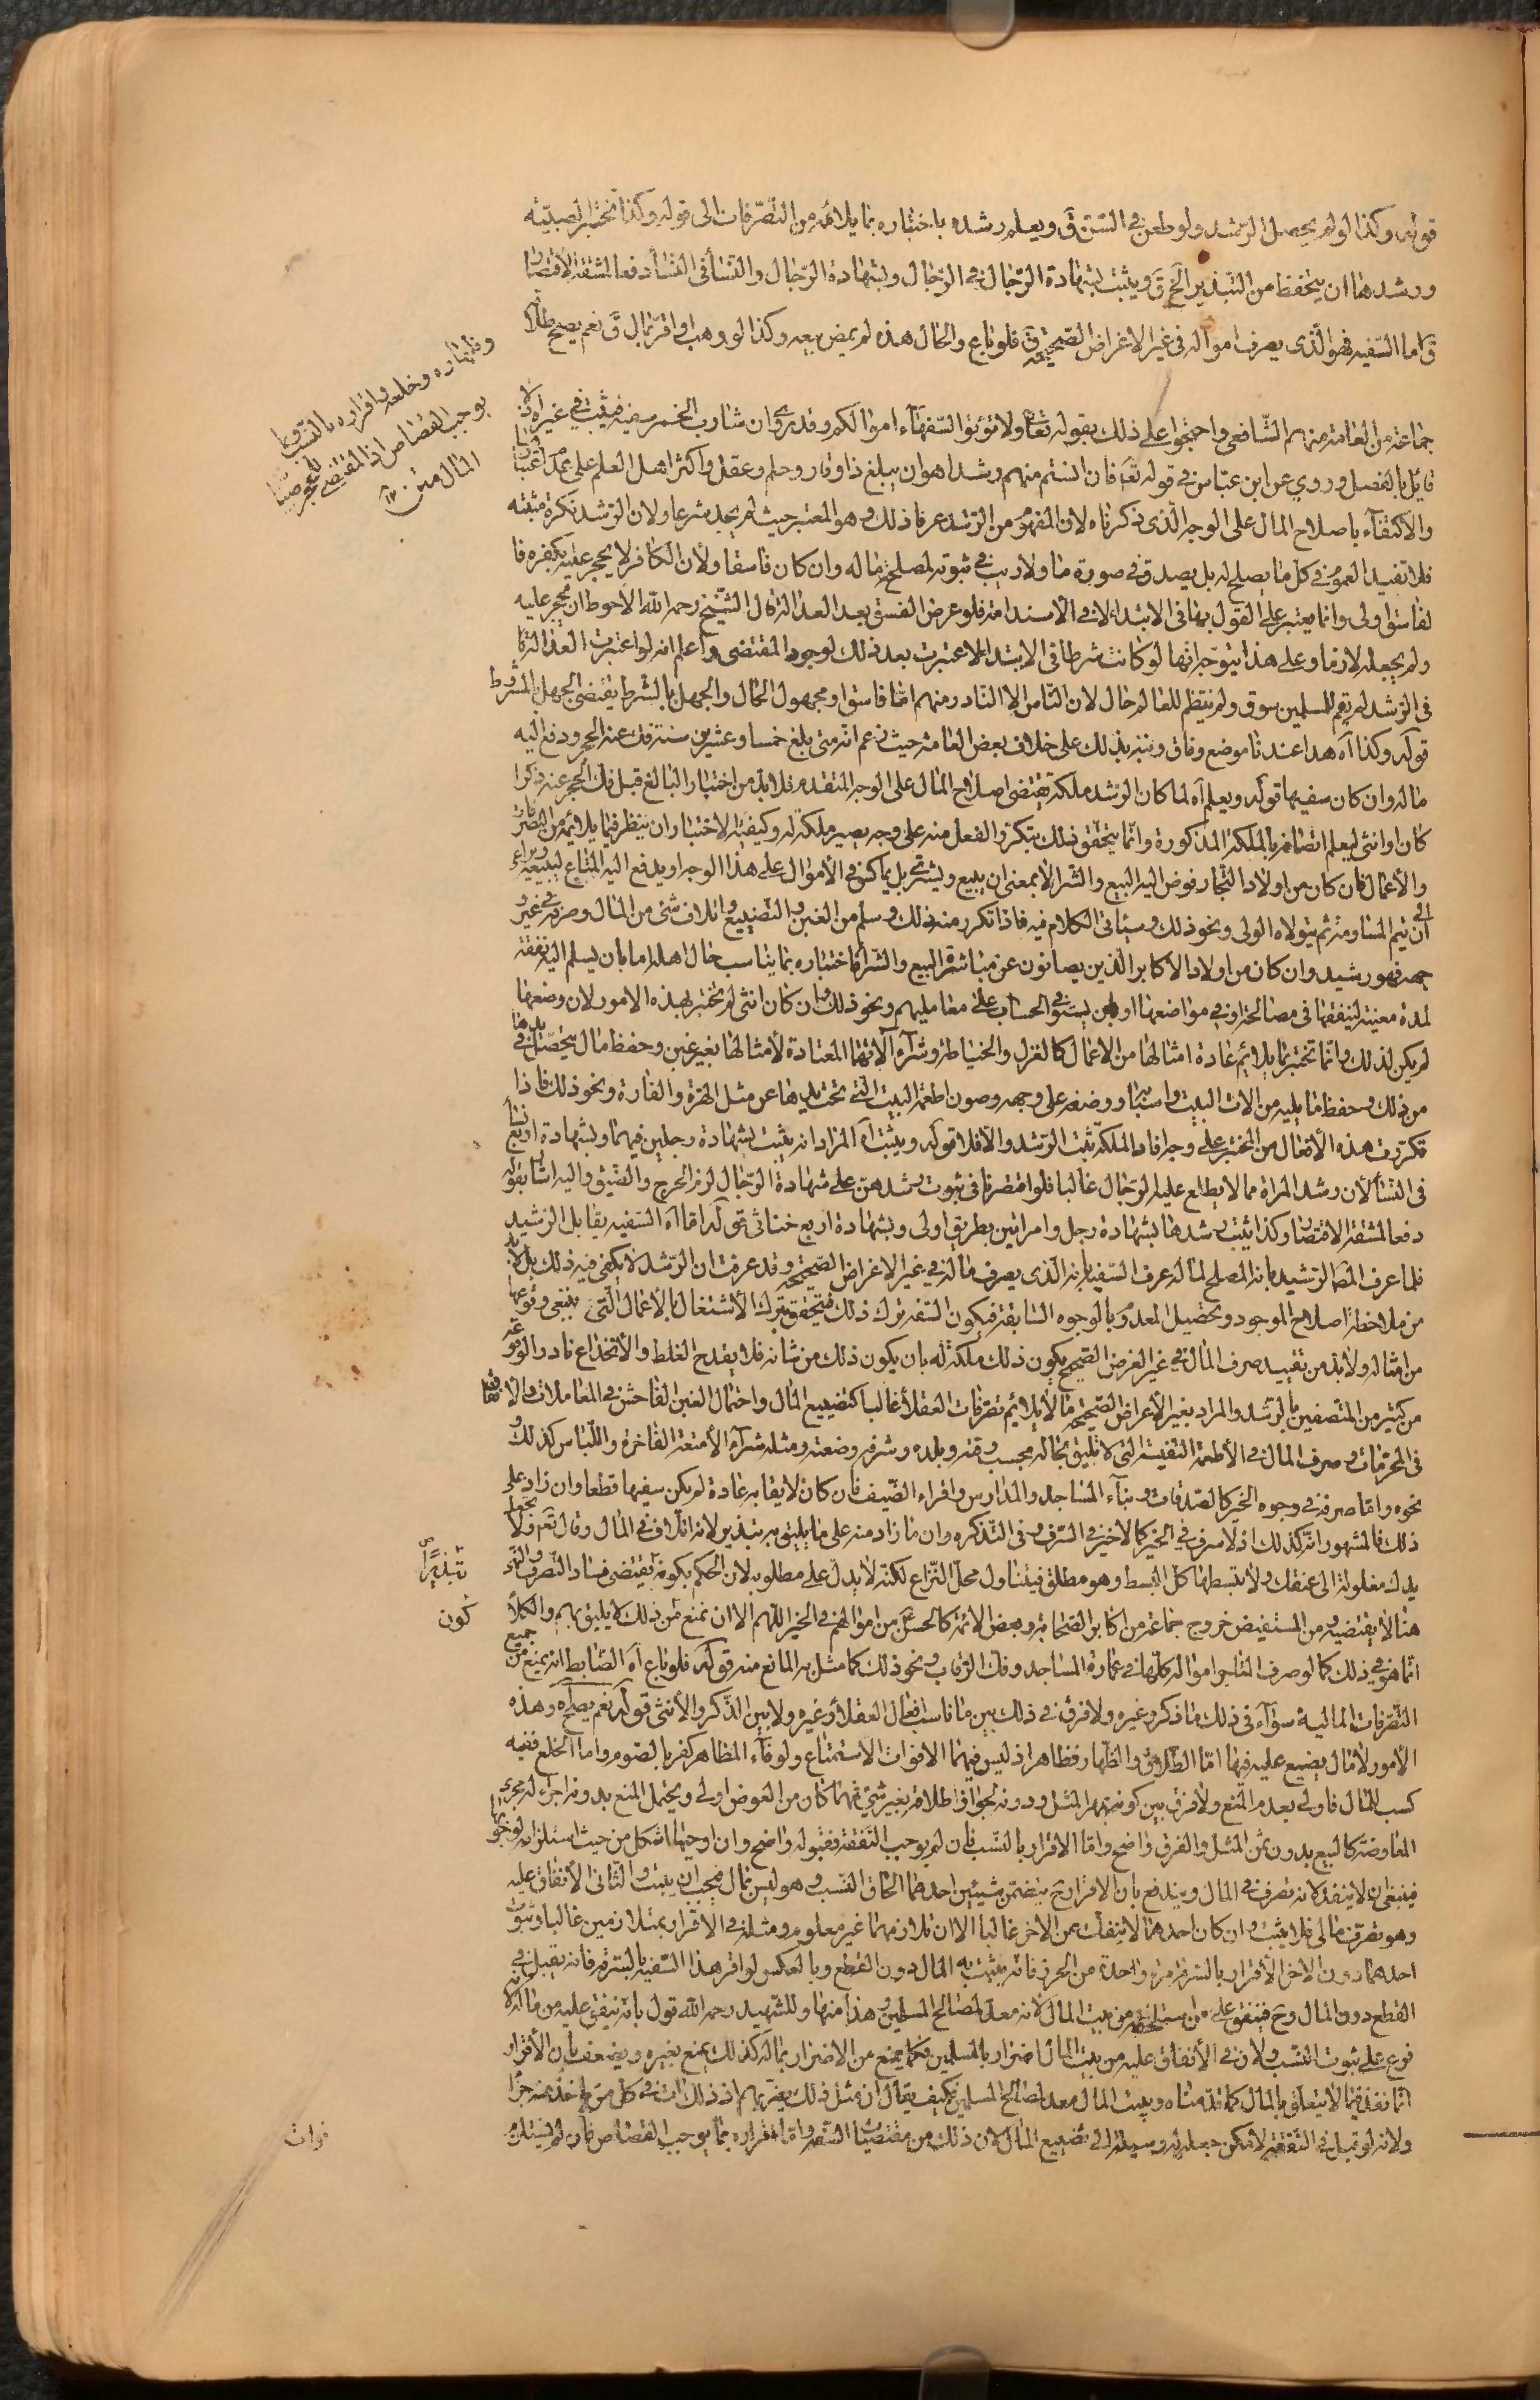 قوله وكذا لو لم يحصل الرشد ولو طعن في السن ق ويعلم رشده باختباره بما يلائمه من التصرفات الى قوله وكذا تختبر الصبيّة
ورشدها ان يتحفظ من التبذير الخ ق ويثبت بشهادة الرّجال في الرّجال وبشهادة الرّجال والنسآء في النسآء دفعا لمشقة الاقتصار
ق اما السّفيه فهو الّذي يصرف امواله في غير الاغراض الصّحيحة ق فلو باع والحال هذه لم يمض بيعه وكذا لو وهب او اقرّ بمال ق نعم يصح طلاقه
وظهاره وخلعه واقراره بالنسب وبما
يوجب القصاص اذ المقتضي للحجر صيانة
المال من
جماعة من العامة منهم الشّافعي واحتجوا على ذلك بقوله تعالى ولا تؤتوا السّفهآء اموالكم وقد روى ان شارب الخمر سفيه فيثبت في غيره اذ لا
قائل بالفصل وروي عن ابن عبّاس في قوله تعم فان انستم منهم رشدا هو ان يبلغ ذا وقار وحلم وعقل واكثر اهل العلم على عدم اعتبارها
والاكتفآء باصلاح المال على الوجه الّذي ذكرناه لان المفهوم من الرّشد عرفا ذلك وهو المعتبر حيث لم يحد شرعا ولان الرّشد نكرة مثبتة
فلا تفيد العموم في كل ما يصلح له بل يصدق في صورة ما ولا ريب في ثبوته لمصلح ماله وان كان فاسقا ولأن الكافر لا يحجر عليه بكفره فا
لفاسق اولى وانما يعتبر على القول بها في الابتداء لا في الاستدامة فلو عرض الفسق بعد العدالة قال الشّيخ رحمه الله الاحوط ان يحجر عليه
ولم يجعله لازما وعلى هذا يتوجّه انها لو كانت شرطا في الابتداء لاعتبرت بعد ذلك لوجود المقتضى واعلم انه لو اعتبرت العدالة
في الرّشد لم يقم للمسلمين سوق ولم ينتظم للعالم حال لان النّاس الا النّادر منهم امّا فاسق او مجهول الحال والجهل بالشرط يقتضى الجهل بالمشروط
قوله وكذا اه هذا عندنا موضع وفاق ونبّه بذلك على خلاف بعض العامة حيث زعم انّه متى بلغ خمسا وعشرين سنة فك عنه الحجر ودفع اليه
ماله وان كان سفيها قوله ويعلم اه لما كان الرّشد ملكة يقتضى اصلاح المال على الوجه المتقدم فلابدّ من اختبار البالغ قبل فك الحجر عنه ذكرا
كان او انثى ليعلم اتصافه بالملكة المذكورة وانّما يتحقق ذلك بتكرر الفعل منه على وجه يصير ملكة له وكيفية الاختبار ان ينظر فيما يلائمه من التصرفات
والأعمال فان كان من اولاد التجار فوض اليه البيع والشرآء لا بمعنى ان يبيع ويشتري بل يماكس في الأموال على هذا الوجه او يدفع اليه المتاع ليبيعه ويراعى
الى ان يتم المساومة ثم يتولاه الولى ونحو ذلك وسيأتى الكلام فيه فاذا تكرر منه ذلك وسلم من الغبن والتضييع واتلاف شئ من المال وصرفه في غير و
جهه فهو رشيد وان كان من اولاد الاكابر الّذين يصانون عن مباشرة البيع والشرآء فاختباره بما يناسب حال اهله اما بان يسلم اليه نفقة
لمدة معينة لينفقها في مصالحه او في مواضعها او بان يستوفي الحساب على معامليهم ونحو ذلك وان كان انثى لم تختبر بهذه الامور لان وضعها
لم يكن لذلك وانما تختبر بما يلائم عادة امثالها من الاعمال كالغزل والخياطة وشرآء الاتهما المعتادة لأمثالها بغير غبن وحفظ ما يتحصل في يدها
من ذلك وحفظ ما يليه من الات البيت واسبابه ووضعه على وجهه وصون اطعمة البيت الّتي تحت يدها عن مثل الهرة والفارة ونحو ذلك فاذا
تكررت هذه الأفعال من المختبر على وجه افاد الملكة ثبت الرّشد والا فلا قوله ويثبت اه المراد انه يثبت بشهادة رجلين فيهما وبشهادة اربع نسآء
في النسآء لأن رشد المراة مما لا يطلع عليه الرّجال غالبا فلو اقتصرنا في ثبوت رشدهن على شهادة الرّجال لزم الحرج والضيق واليه اشار بقوله
دفعا لمشقة الاقتصار وكذا يثبت رشدها بشهادة رجل وامراتين بطريق اولى وبشهادة اربع خناثى قوله اما اه السّفيه يقابل الرّشيد
فلما عرف المصّ الرّشيد بانه المصلح لماله عرف السّفيه بانه الّذي يصرف ماله في غير الاغراض الصّحيحة وقد عرفت ان الرّشد لا يكفى فيه ذلك بل لابد
من ملاحظة اصلاح الموجود وتحصيل المعدوم بالوجوه السّابقة فيكون السّفه ترك ذلك فيتحقق بترك الأشتغال بالاعمال الّتي ينبغى وقوعها
من امثاله ولابدّ من تقييد صرف المال في غير الغرض الصّحيح بكون ذلك ملكة له بان يكون ذلك من شانه فلا يقدح الغلط والأنخداع نادرا لوقوعه
من كثير من المتصفين بالرّشد والمراد بغير الأغراض الصّحيحة ما لا يلائم تصرّفات العقلآء غالبا كتضييع المال واحتمال الغبن الفاحش في المعاملات والانفاق
في المحرمات وصرف المال في الأطعمة النّفيسة الّتي لا تليق بحاله بحسب وقته وبلده وشرفه وضعته ومثله شرآء الأمتعة الفاخرة واللّباس كذلك و
نحوه واما صرفه في وجوه الخير كالصّدقات وبنآء المساجد والمدارس واقراء الضّيف فان كان لايقا به عادة لم يكن سفيها قطعا وان زاد على
ذلك فالمشهور انّه كذلك اذ لا سرف في الخير كما لا خير في السّرف وفي التّذكره وان ما زاد منه على ما يليق به تبذير لانه اتلاف في المال وقال تعم ولا تجعل
تبذيرًا
يدك مغلولة الى عنقك ولا تبسطها كل البسط وهو مطلق فيتناول محل النّزاع لكنّه لا يدل على مطلوبه لان الحكم بكونه يقتضى فساد التّصرف والنهى
كون
هنا لا يقتضيه ومن المستفيض خروج جماعة من اكابر الصّحابة وبعض الائمة كالحسن من اموالهم في الخير اللّهم الا ان نمنع من ذلك لا يليق بهم والكلام
انما هو في ذلك كما لو صرف التاجر امواله كلها في عمارة المساجد وفك الرّقاب ونحو ذلك كما مثل به المانع منه قوله فلو باع اه الضّابط انه يمنع من جميع
التّصرفات المالية سوآء في ذلك ما ذكر وغيره ولا فرق في ذلك بين ما ناسب افعال العقلآء وغيره ولا بين الذّكر والأنثى قوله نعم يصح اه وهذه
الأمور لا مال يضيع عليه فيها امّا الطّلاق والظّهار فظاهر اذ ليس فيهما الا فوات الاستمتاع ولو فآء المظاهر كفر بالصّوم واما الخلع ففيه
كسب للمال فاولى بعدم المنع ولا فرق بين كونه بمهر المثل ودونه لجواز طلاقه بغير شئ فمهما كان من العوض اولى ويحتمل المنع بدونه اجرآء له مجرى
المعاوضة كالبيع بدون ثمن المثل والفرق واضح وامّا الاقرار بالنّسب فان لم يوجب النّفقة فقبوله واضح وان اوجبها اشكل من حيث استلزامه لوجوبها
فينبغى ان لا ينفذ لانه تصرف في المال ويندفع بان الاقرار ح يتضمن شيئين احدهما الحاق النّسب وهو ليس بمال فيجب ان يثبت والثاني الأنفاق عليه
وهو تصرف مالى فلا يثبت وان كان احدهما لا ينفك عن الاخر غالبا الا ان تلازمهما غير معلوم ومثله في الاقرار بمتلازمين غالبا وثبوت
احدهما دون الاخر الأقرار بالسّرقة مرة واحدة من الحرز فانه يثبت به المال دون القطع وبالعكس لو اقر هذا السّفيه بالسّرقة فانه يقبل في
القطع دون المال وح فينفق على من استلحقه من بيت المال لانه معد لمصالح المسلمين وهذا منها وللشّهيد رحمه الله قول بانه ينفق عليه من ماله لانه
فرع على ثبوت النّسب ولان في الأنفاق عليه من بيت المال اضرار بالمسلمين فكما يمنع من الاضرار بماله كذلك يمنع بغيره ويضعف بان الأقرار
انما نفذ فيما لا يتعلق بالمال كما قدّمناه وبيت المال معد لمصالح المسلمين فكيف يقال ان مثل ذلك يضر بهم اذ ذلك ات في كل من ياخذ منه جزءا
ولانه لو قبل في النّفقة لامكن جعله وسيلة الى تضييع المال لان ذلك من مقتضيات السّفه وامّا اقراره بما يوجب القصاص فان لم يستلزم
فوات